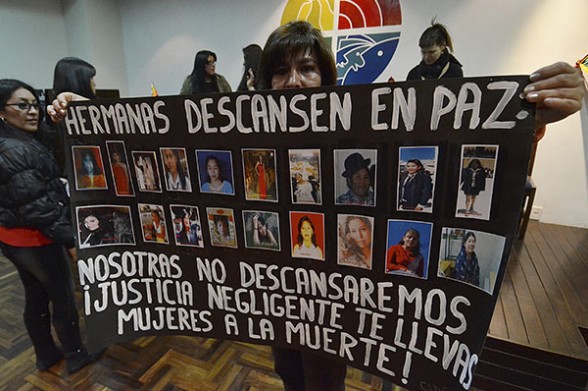 HERMANAS DESCANSEN EN PAZ.
NOSOTRAS NO DESCANSAREMOS
¡JUSTICIA NEGLIGENTE TE LLEVAS
MUJERES A LA MUERTE!